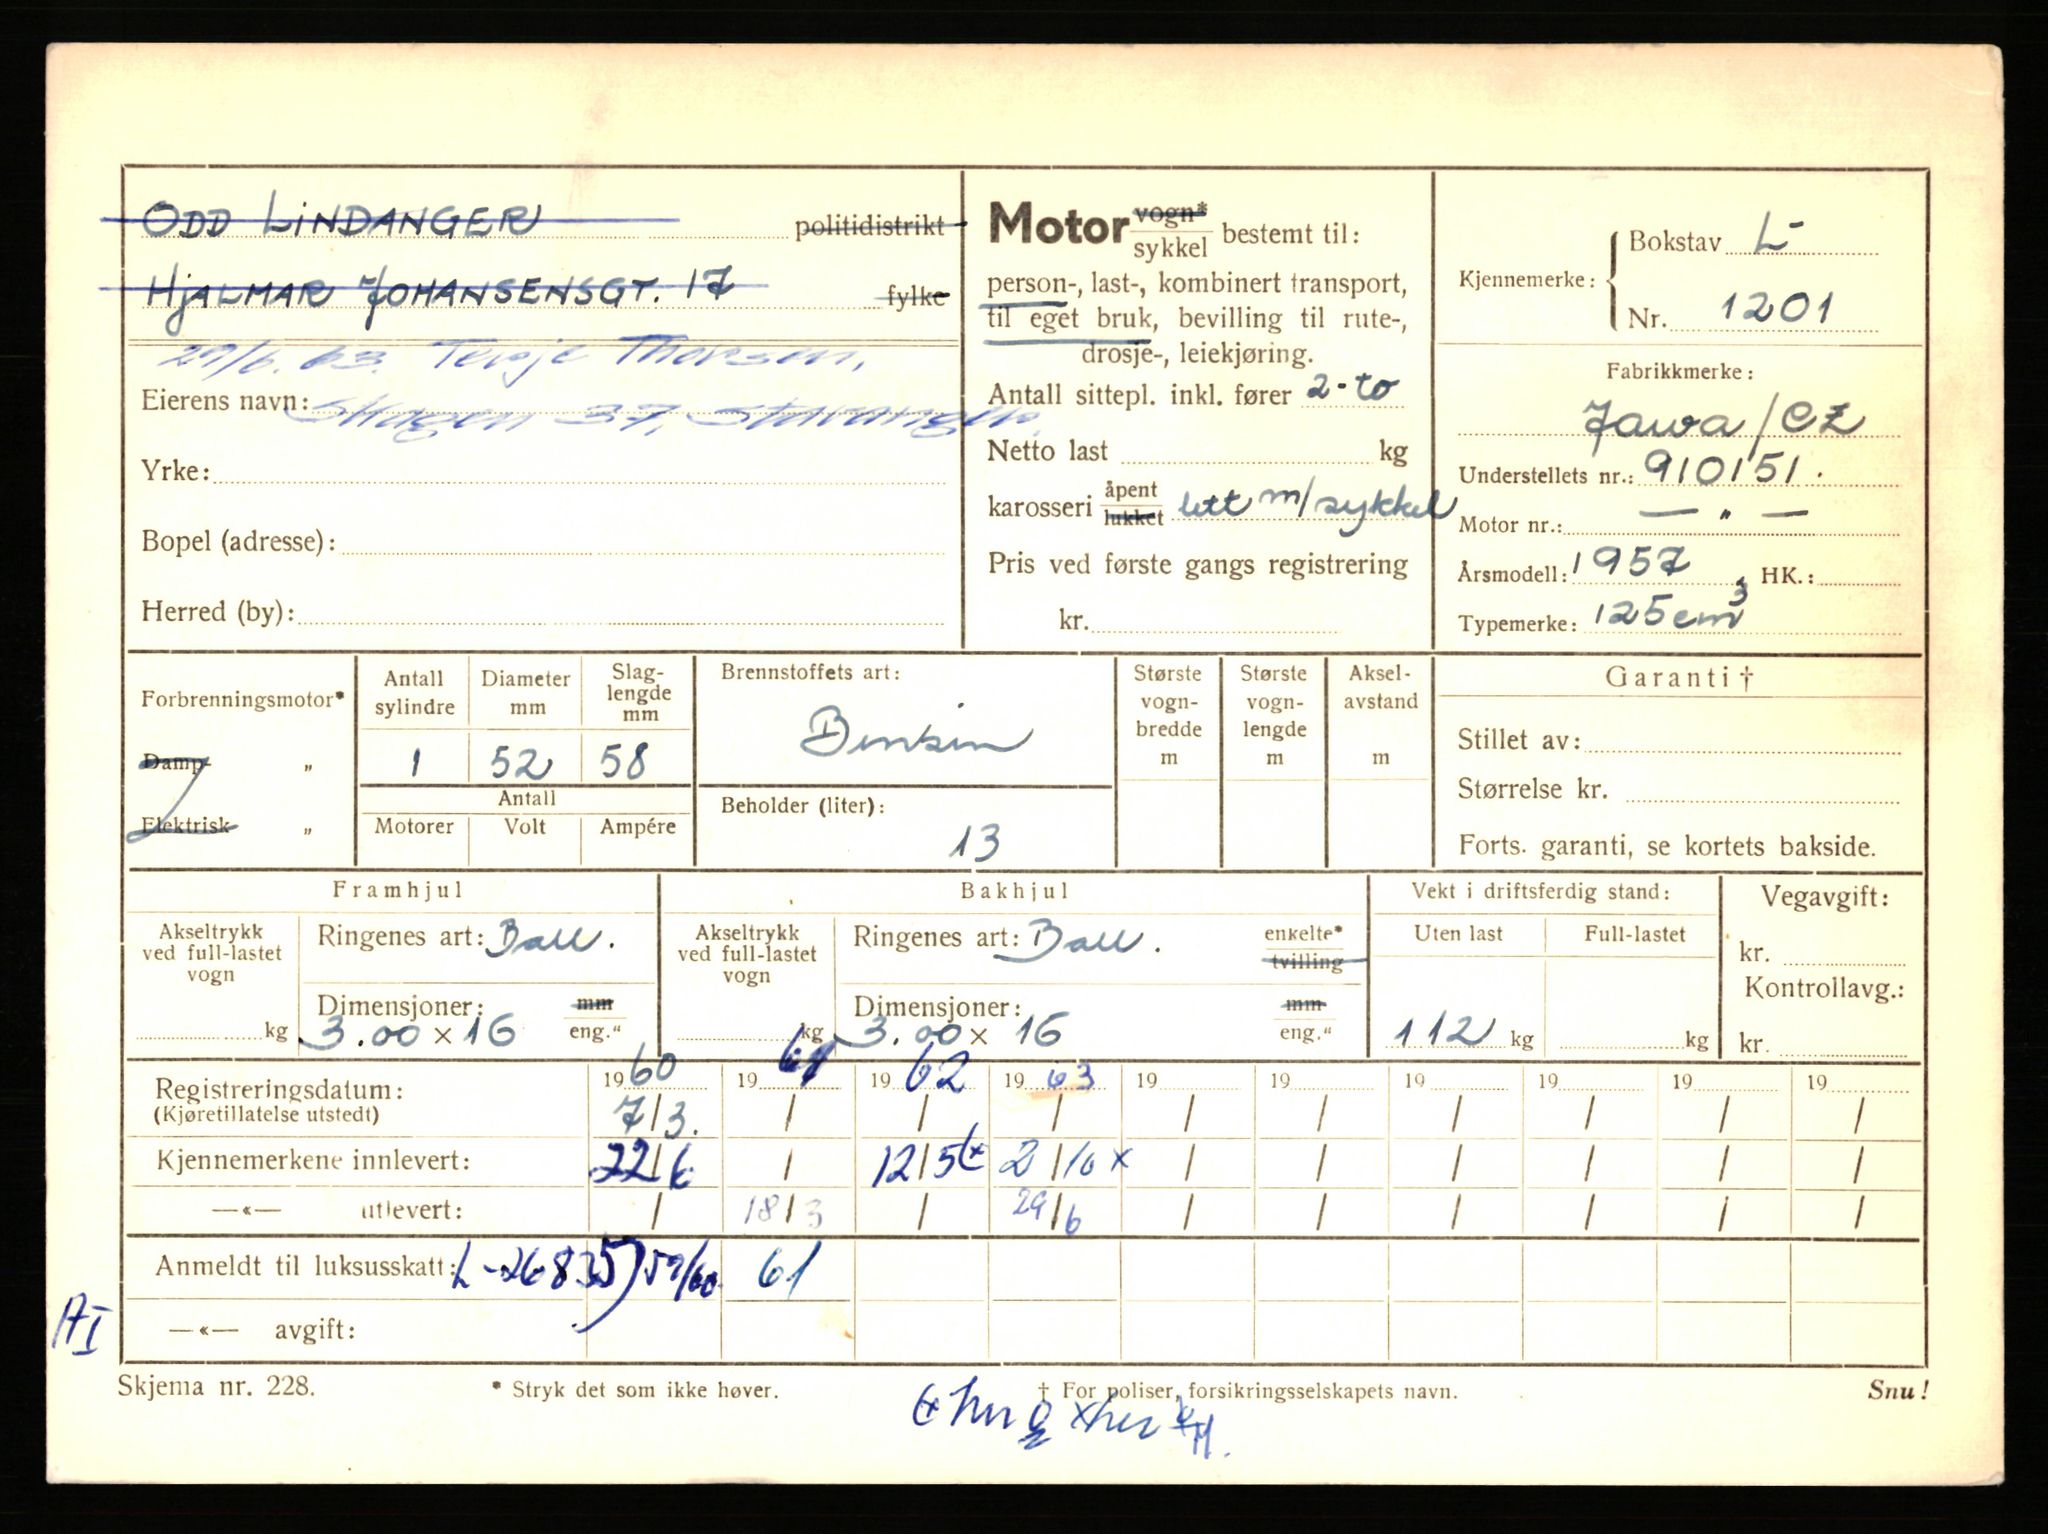 ODD LINDANGER politidistrikt
HJALMAR JOHANSENSGT. 17 fylke
29/6.63. Terje Thorsen,
Eierens navn: Skagen 37, Stavanger.
Yrke:
Bopel (adresse):
Herred (by):
Motor vogn* / sykkel bestemt til:
person-, last-, kombinert transport,
til eget bruk, bevilling til rute-,
drosje-, leiekjøring.
Antall sittepl. inkl. fører 2-to
Netto last kg
karosseri åpent / lukket lett m/sykkel
Pris ved første gangs registrering
kr.
Kjennemerke: Bokstav L-
Nr. 1201
Fabrikkmerke:
Jawa/CZ
Understellets nr.: 910151.
Motor nr.: — " —
Årsmodell: 1957 HK.:
Typemerke: 125 cm3
Forbrenningsmotor*
Damp- "
Elektrisk "
Antall sylindre Diameter mm Slag-lengde mm
1 52 58
Antall
Motorer Volt Ampére
Brennstoffets art:
Bensin
Beholder (liter):
13
Største vogn-bredde m
Største vogn-lengde m
Aksel-avstand m
Garanti †
Stillet av:
Størrelse kr.
Forts. garanti, se kortets bakside.
Framhjul
Akseltrykk ved full-lastet vogn
kg
Ringenes art: Ball.
Dimensjoner: mm
3.00 x 16 eng."
Bakhjul
Akseltrykk ved full-lastet vogn
kg
Ringenes art: Ball. enkelte* tvilling
Dimensjoner: mm
3.00 x 16 eng."
Vekt i driftsferdig stand:
Uten last Full-lastet
112 kg kg
Vegavgift:
kr.
Kontrollavg.:
kr.
Registreringsdatum: 1960 1961 1962 1963 19 19 19 19 19 19
(Kjøretillatelse utstedt) 7/3. / / / / / / / / /
Kjennemerkene innlevert: 22/6 / 12/5 (x 2/10 x / / / / / /
—«— utlevert: / 18/3 / 29/6 / / / / / /
Anmeldt til luksusskatt: L-26835) 59/60 61
—«— avgift:
AI
Skjema nr. 228.
* Stryk det som ikke høver.
† For poliser, forsikringsselskapets navn.
Snu!